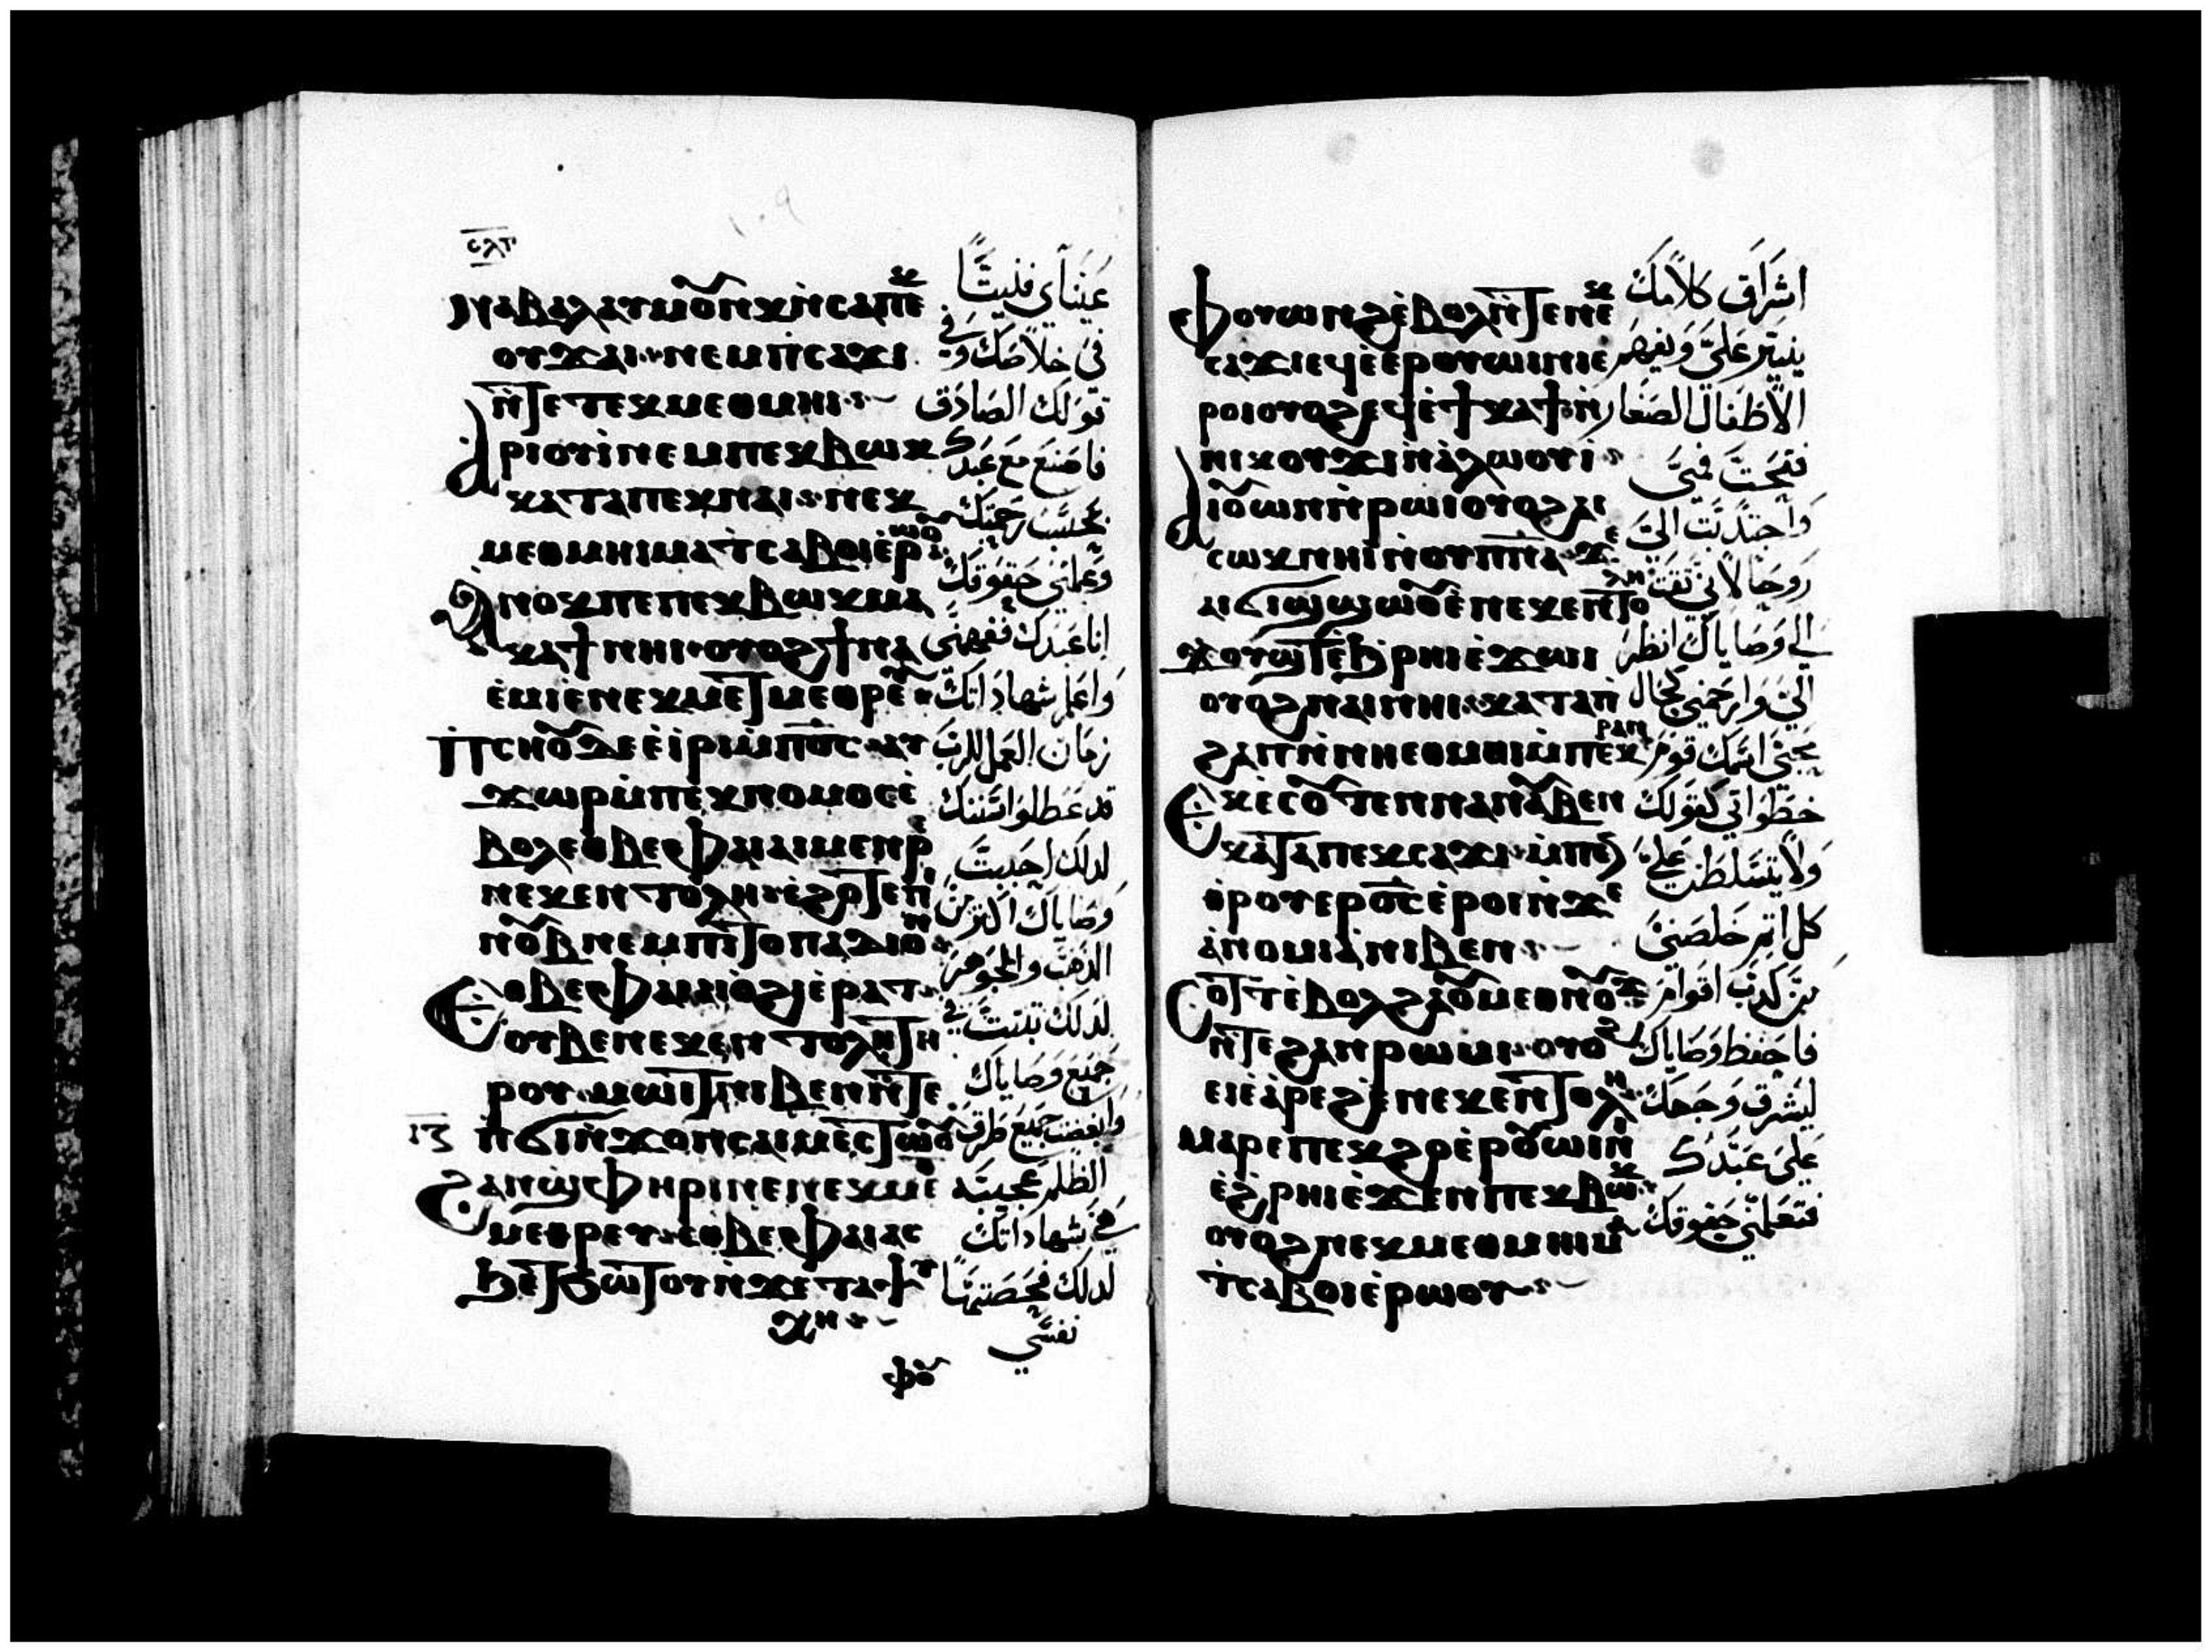 ⲥⲗⲅ
ⲛⲁⲃⲁⲗⲁⲩⲙⲟⲩⲛⲕⲛ̀ⲥⲁⲡⲉⲕ
ⲟⲩϫⲁⲓ ⲛⲉⲙⲡⲥⲁϫⲓ
ⲛ̀ⲧⲉⲧⲉⲕⲙⲉⲑⲙⲏⲓ
ⲁⲣⲓⲟⲩⲓ̀ⲛⲉⲙⲡⲉⲕⲃⲱⲕ
ⲕⲁⲧⲁⲡⲉⲕⲛⲁⲓ ⲛⲉⲕ
ⲙⲉⲑⲙⲏⲓⲙⲁⲧⲥⲁⲃⲟⲓⲉ̀ⲣⲱⲟⲩ
ⲁⲛⲟⲕⲡⲉⲡⲉⲕⲃⲱⲕⲙⲁ
ⲕⲁϯⲛⲏⲓ ⲟⲩⲟϩϯⲛⲁ
ⲉ̀ⲙⲓⲉ̀ⲛⲉⲕⲙⲉⲧⲙⲉⲑⲣⲉⲩ
ⲡⲥⲏⲟⲩⲇⲉⲉ̀ⲓⲣⲓⲙ̀ⲡⲟ̅ⲥ̅ ⲁⲩ
ϫⲱⲣⲙ̀ⲡⲉⲕⲛⲟⲙⲟⲥⲉ̀
ⲃⲟⲗⲉⲑⲃⲉⲫⲁⲓⲁⲓⲙⲉⲛⲣⲉ
ⲛⲉⲕⲉⲛⲧⲟⲗⲏ ⲉ̀ϩⲟⲧⲉⲡⲓ
ⲛⲟⲩⲃⲛⲉⲙⲡⲓⲧⲟⲡⲁⲇⲓⲟⲛ
ⲉⲑⲃⲉⲫⲁⲓⲁⲓⲟ̀ϩⲓⲉ̀ⲣⲁⲧ
ⲟⲩⲃⲉⲛⲉⲕⲉⲛⲧⲟⲗⲏⲧⲏ
ⲣⲟⲩ ⲙⲱⲓⲧⲛⲓⲃⲉⲛⲛ̀ⲧⲉ
ⲡϭⲓⲛ̀ϫⲟⲛⲥⲁⲓⲙⲉⲥⲧⲱⲟⲩ
ⲓⲍ
ϩⲁⲛϣⲫⲏⲣⲓⲛⲉⲛⲉⲕⲙⲉ
ⲙⲉⲑⲣⲉⲩ ⲉⲑⲃⲉⲫⲁⲓⲁⲥ
ϧⲉⲧϧⲱⲧⲟⲩⲛ̀ϫⲉⲧⲁⲯⲩ
ⲭⲏ
ⲫⲟⲩ
عيناي فنيتا
في خلاصك وفي
قولك الصادق
فاصنع مع عبدك
بحسب رحمتك
وعلمني حقوقك
انا عبدك ففهمني
واعلم شهاداتك
زمان العمل للرب
قد عطلوا سننك
لدلك احببت
وصاياك اكتر من
الدهب والجوهر
لدلك تبتت في
جميع وصاياك
وابغضت جميع طرق
الظلم عجيبة
هي شهاداتك
لدلك فحصتها
نفسي
ⲫⲟⲩⲱⲛϩⲉ̀ⲃⲟⲗⲛ̀ⲧⲉⲛⲉⲕ
ⲥⲁϫⲓⲉϥⲉ̀ⲉⲣⲟⲩⲱⲓⲛⲓⲉ
ⲣⲟⲓⲟⲩⲟϩⲉϥⲉ̀ϯⲕⲁϯⲛ̀
ⲛⲓⲕⲟⲩϫⲓⲛ̀ⲁ̀ⲗⲱⲟⲩⲓ
ⲁⲓⲟⲩⲱⲛⲛ̀ⲣⲱⲓⲟⲩⲟϩⲁⲓ
ⲥⲱⲕⲛⲏⲓⲛ̀ⲟⲩⲡⲛ̅ⲁ̅ ϫⲉ
ⲁⲓϭⲓϣϣⲱⲟⲩⲉ̀ⲛⲉⲕⲉⲛⲧⲟⲗⲏ
ϫⲟⲩϣⲧⲉ̀ϧⲣⲏⲓⲉ̀ϫⲱⲓ
ⲟⲩⲟϩⲛⲁⲓⲛⲏⲓ ⲕⲁⲧⲁⲡ̀
ϩⲁⲡⲛ̀ⲛⲏⲉⲑⲙⲉⲓⲙ̀ⲡⲉⲕⲣⲁⲛ
ⲉⲕⲉ̀ⲥⲟⲩⲧⲉⲛⲛⲁⲧⲁⲧⲥⲓⲉⲛ
ⲕⲁⲧⲁⲡⲉⲕⲥⲁϫⲓ ⲙ̀ⲡⲉⲛ
ⲑⲣⲟⲩⲉⲣⲟ̅ⲥ̅ⲉ̀ⲣⲟⲓⲛ̀ϫⲉ
ⲁ̀ⲛⲟⲙⲓⲁⲛⲓⲃⲉⲛ
ⲥⲟⲧⲧⲉ̀ⲃⲟⲗϩⲁⲟⲩⲙⲉⲑⲛⲟⲩϫ
ⲛ̀ⲧⲉϩⲁⲛⲣⲱⲙⲓ ⲟⲩⲟϩ
ⲉⲓⲉ̀ⲁⲣⲉϩⲉ̀ⲛⲉⲕⲉⲛⲧⲟⲗⲏ
ⲙⲁⲣⲉⲡⲉⲕϩⲟⲉ̀ⲣⲟⲩⲱⲓⲛⲓ
ⲉ̀ϩⲣⲏⲓⲉ̀ϫⲉⲛⲡⲉⲕⲃⲱⲕ
ⲟⲩⲟϩⲛⲉⲕⲙⲉⲑⲙⲏⲓⲙⲁ
ⲧⲥⲁⲃⲟⲓⲉ̀ⲣⲱⲟⲩ
اشراق كلامك
ينير علي ويفهم
الاطفال الصغار
فتحت في
واجتدبت الي
روحا لاني تقت
الي وصاياك انظر
الي وارحمني كحال
محبي اسمك قوم
خطواتي كقولك
ولا يتسلط علي
كل اتم خلصني
من كدب اقوام
فاحفظ وصاياك
ليشرق وجهك
علي عبدك
فتعلمني حقوقك